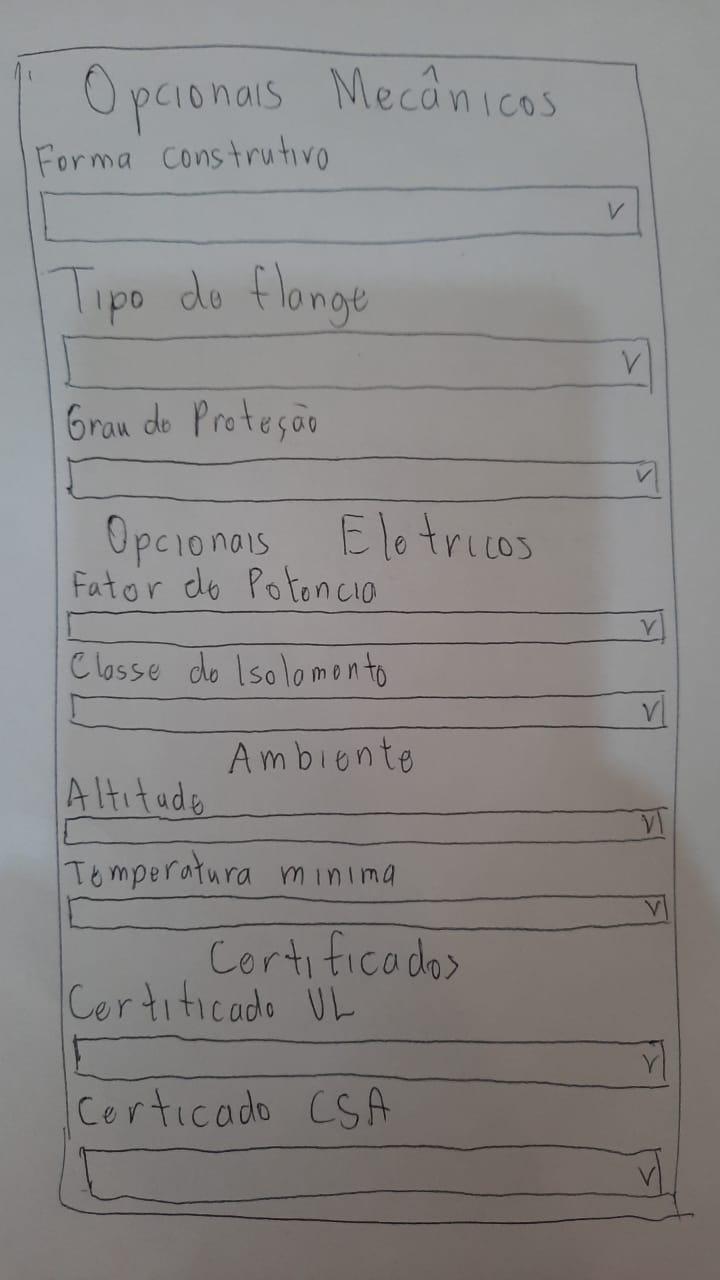 Opcionais Mecânicos
Forma construtivo
Tipo de flange
Grau de Proteção
Opcionais Eletricos
Fator de Potencia
Classe de Isolamento
Ambiente
Altitude
Temperatura minima
Certificados
Certificado UL
Certicado CSA